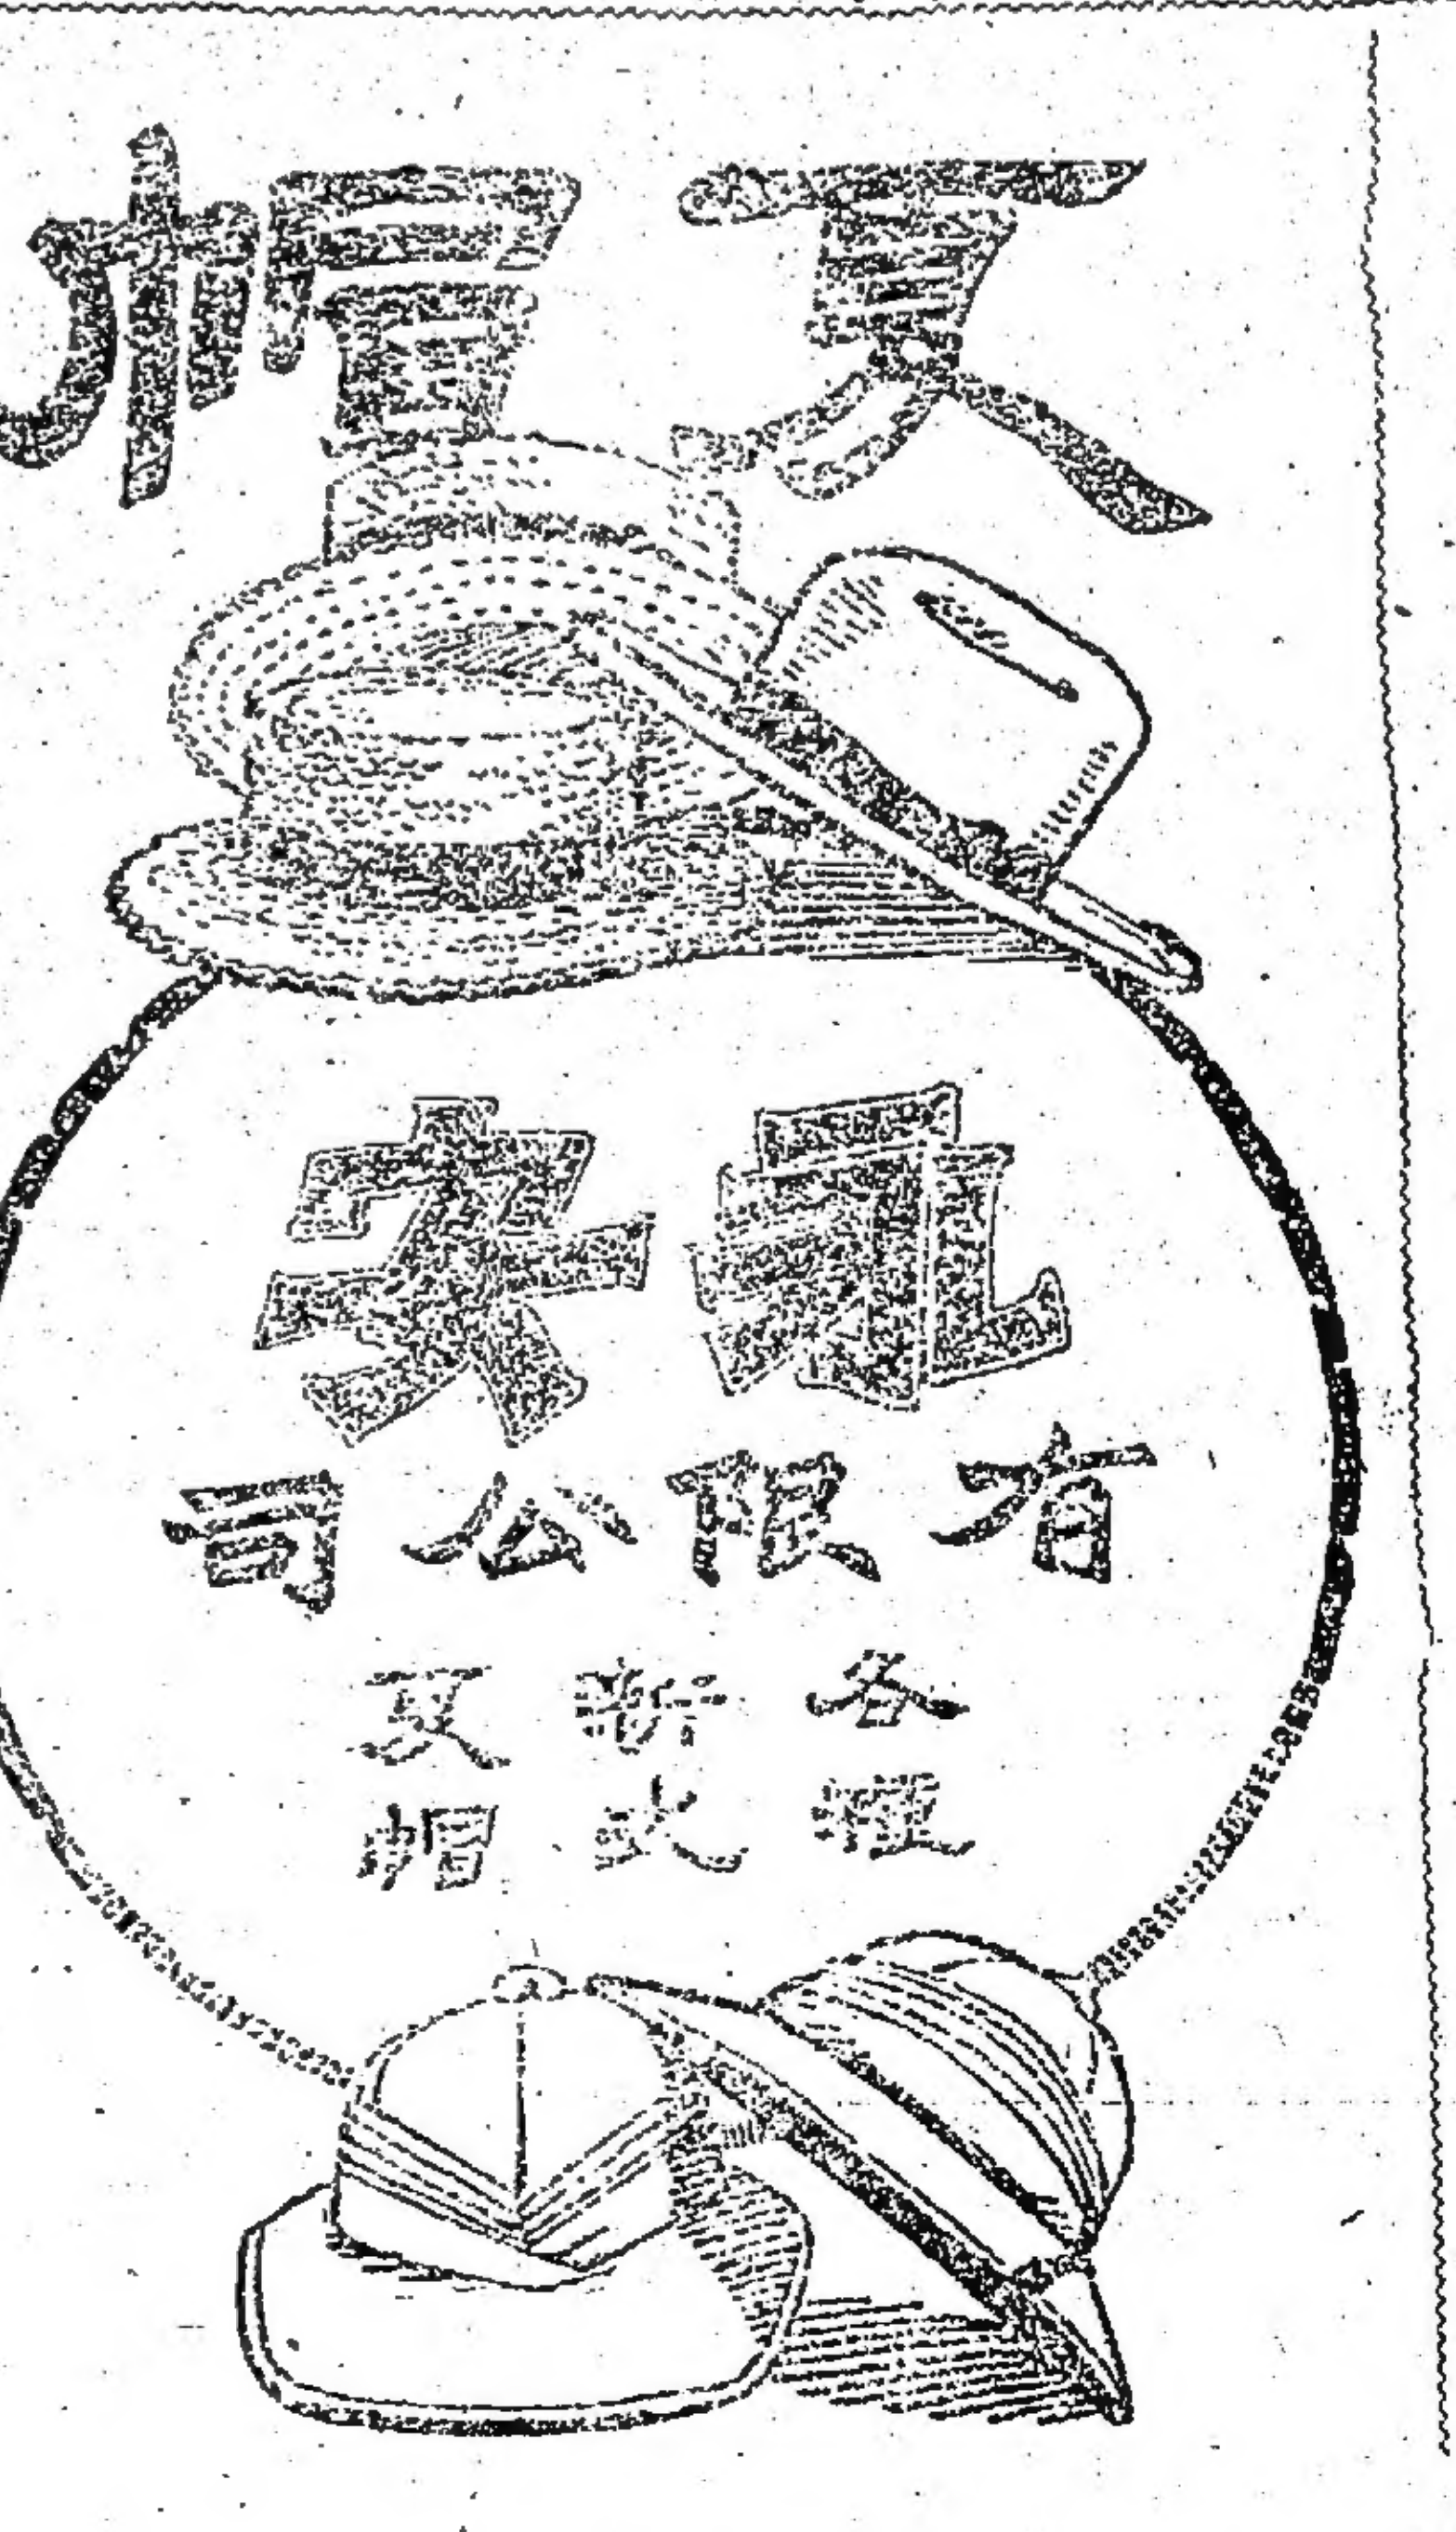 夏帽
永安
有限公司
各種
新式
夏帽